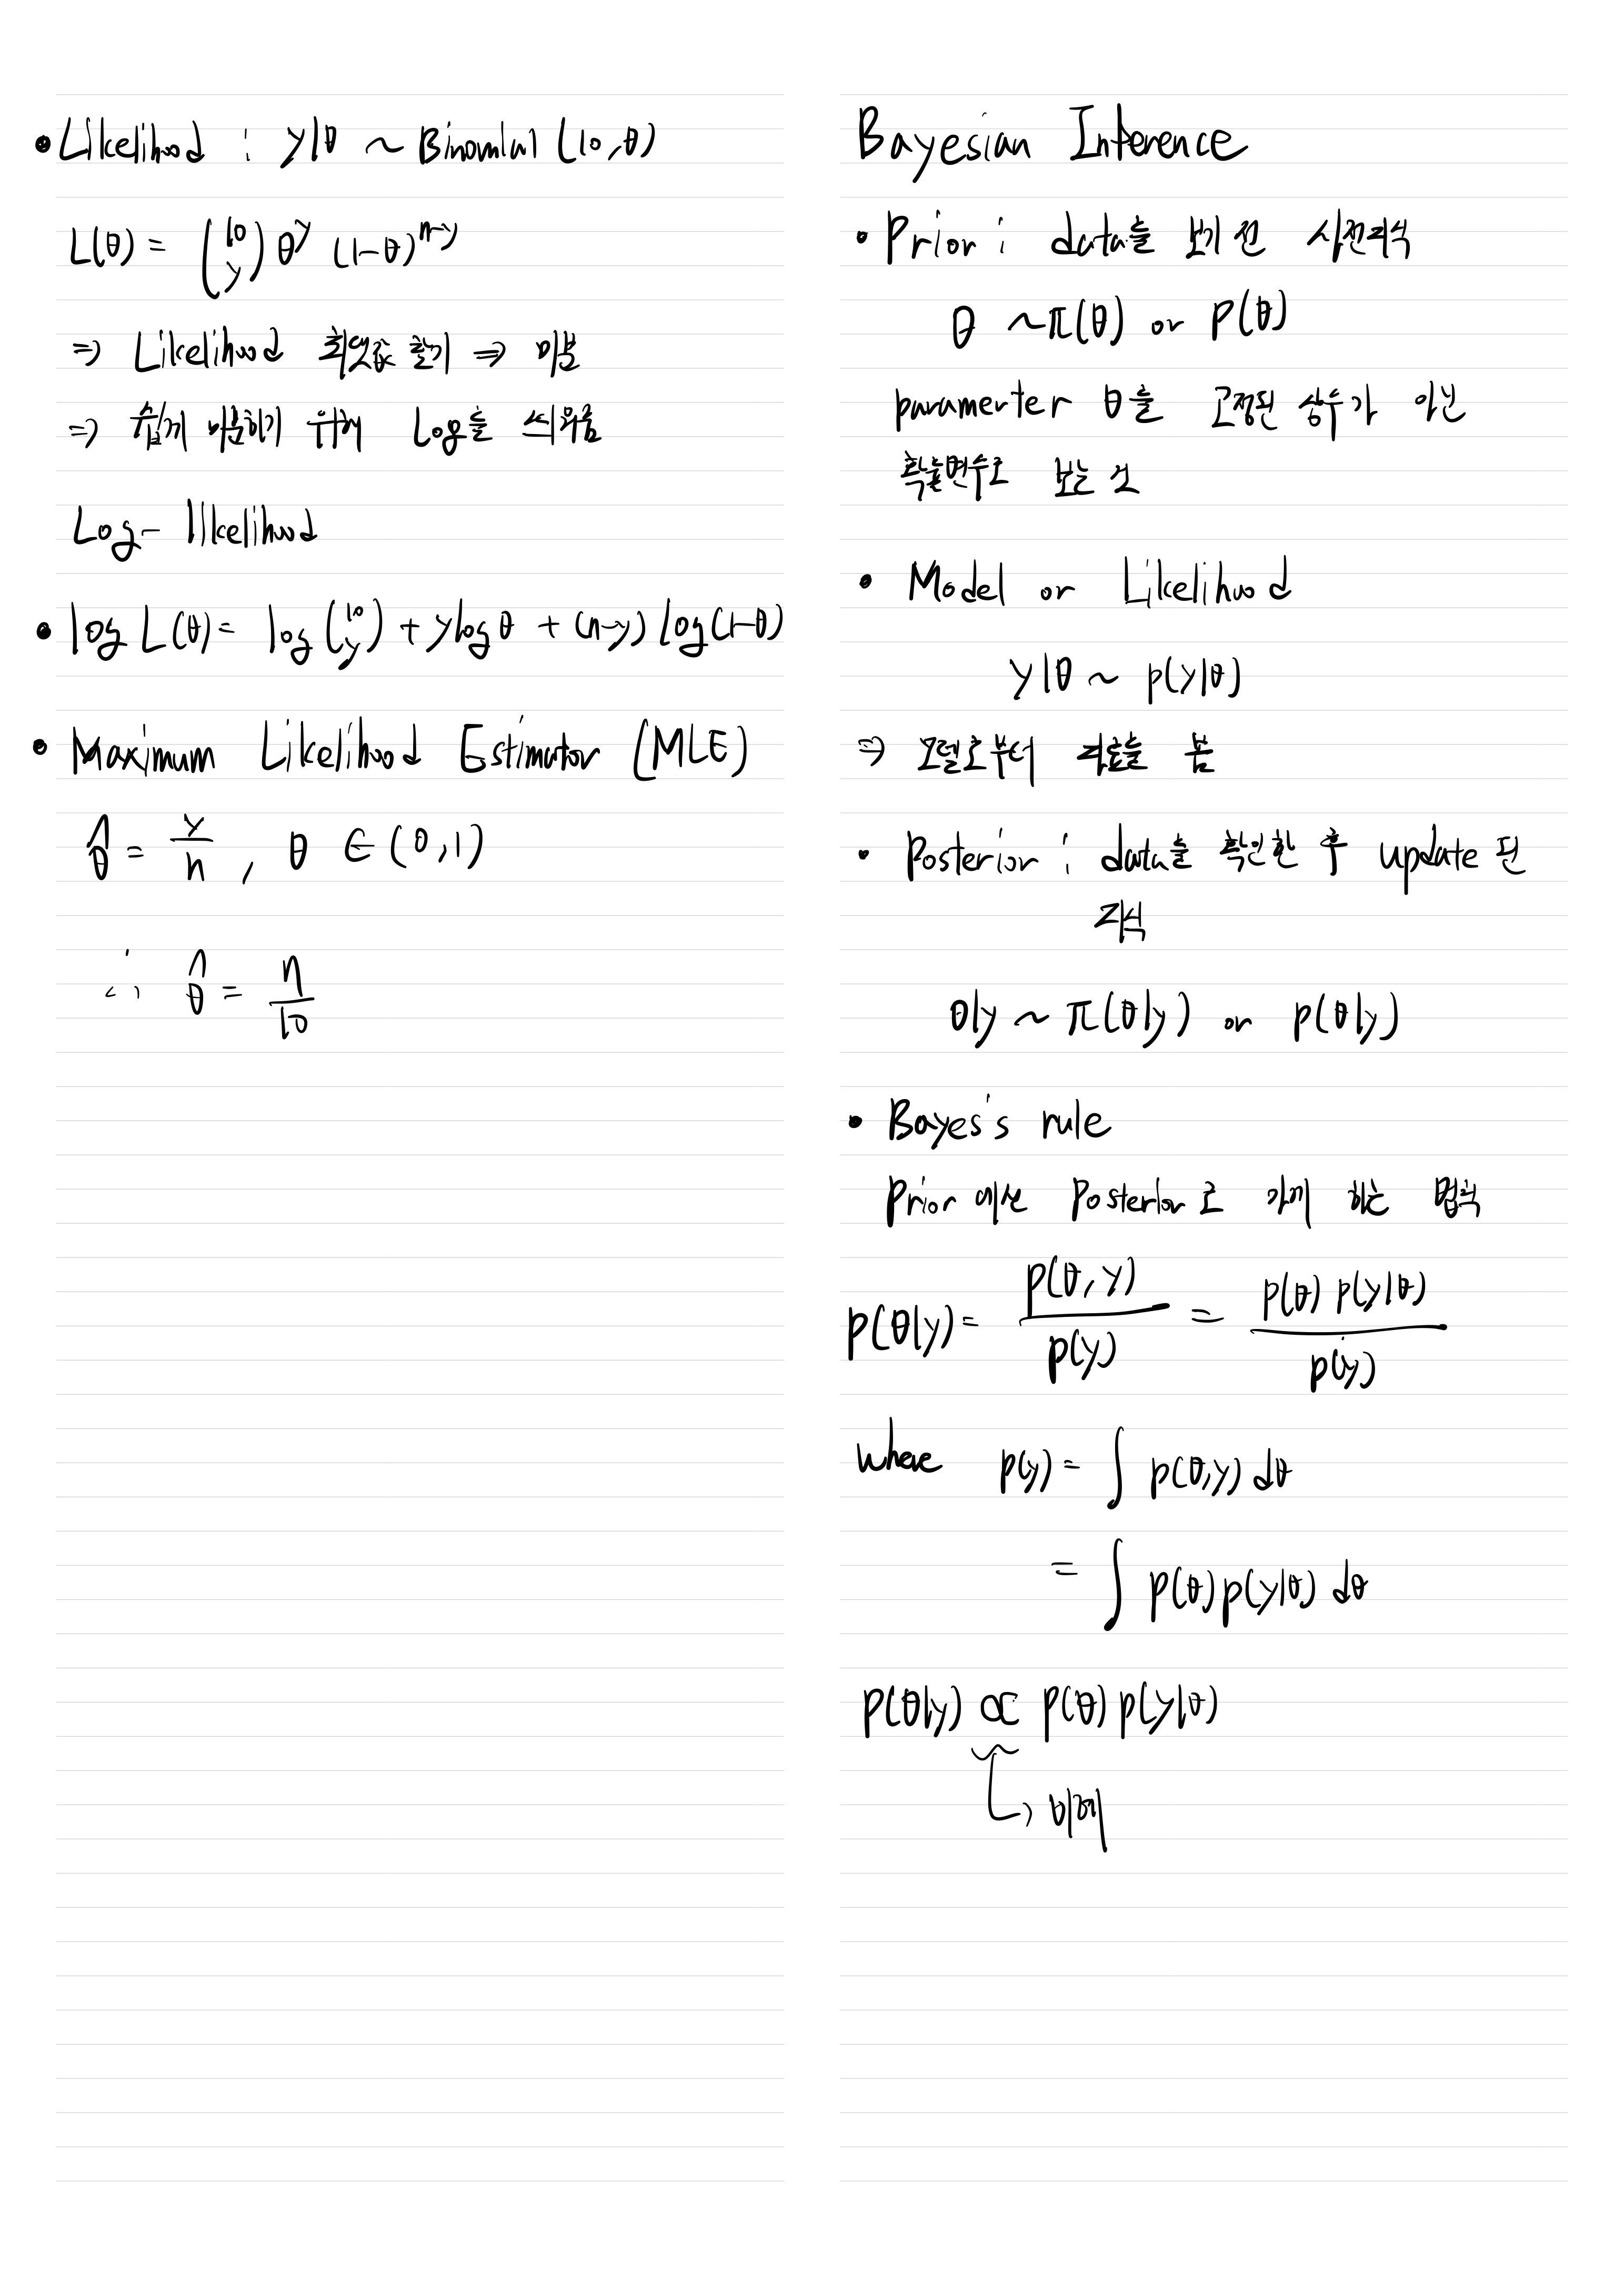 • Likelihood : y|θ ~ Binomial (10, θ)
L(θ) = (10 y) θ^y (1-θ)^(n-y)
⇒ Likelihood 최댓값 찾기 ⇒ 미분
⇒ 쉽게 미분하기 위해 Log를 씌움
Log- likelihood
• log L(θ) = log (10 y) + ylogθ + (n-y) log(1-θ)
• Maximum Likelihood Estimator (MLE)
θ̂ = y/n , θ ∈ (0,1)
∴ θ̂ = n/10
Bayesian Inference
• Prior : data를 보기 전 사전지식
θ ~ π(θ) or P(θ)
paramerter θ를 고정된 상수가 아닌
확률변수로 보는 것
• Model or Likelihood
y|θ ~ p(y|θ)
⇒ 모델로부터 자료를 봄
• Posterior : data를 확인한 후 update 된
지식
θ|y ~ π(θ|y) or p(θ|y)
• Bayes's rule
Prior 에서 Posterior로 가게 하는 법칙
p(θ|y) = p(θ,y)/p(y) = p(θ) p(y|θ)/p(y)
where p(y) = ∫ p(θ,y) dθ
= ∫ p(θ) p(y|θ) dθ
p(θ|y) ∝ p(θ) p(y|θ)
↳ 비례